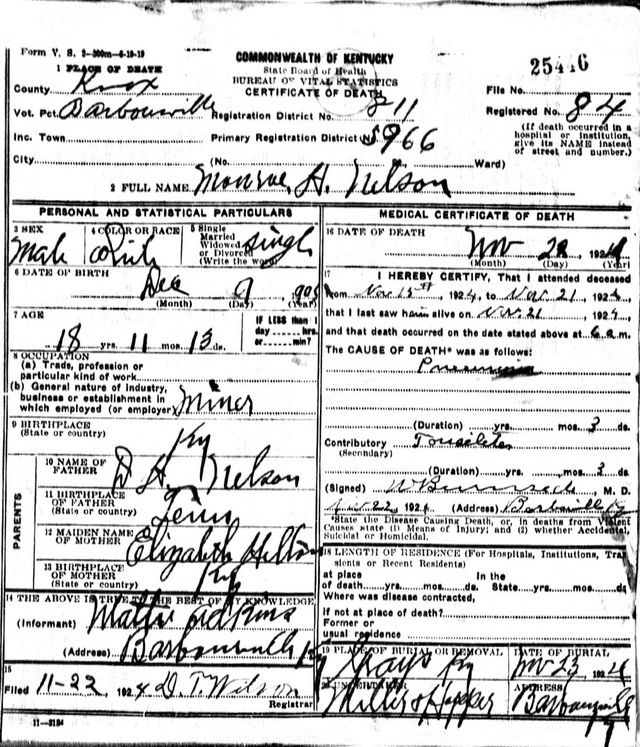 Form V. S. 2-300m-6-19-19
COMMONWEALTH OF KENTUCKY
State Board of Health
BUREAU OF VITAL STATISTICS
CERTIFICATE OF DEATH
25446
1 PLACE OF DEATH
County Knox
File No.
Vot. Pct. Barbourville Registration District No. 811
Registered No. 84
Inc. Town Primary Registration District No. 5966
(If death occurred in a hospital or institution, give its NAME instead of street and number.)
City (No. Ward)
2 FULL NAME Monroe H. Nelson
PERSONAL AND STATISTICAL PARTICULARS
3 SEX Male
4 COLOR OR RACE White
5 Single Married Widowed or Divorced (Write the word) Single
6 DATE OF BIRTH Dec 9 1905
(Month) (Day) (Year)
7 AGE 18 yrs. 11 mos. 13 ds.
IF LESS than 1 day hrs. or min?
8 OCCUPATION
(a) Trade, profession or particular kind of work
(b) General nature of industry, business or establishment in which employed (or employer) Miner
9 BIRTHPLACE (State or country) Ky
PARENTS
10 NAME OF FATHER D H. Nelson
11 BIRTHPLACE OF FATHER (State or country) Tenn
12 MAIDEN NAME OF MOTHER Elizabeth Helton
13 BIRTHPLACE OF MOTHER (State or country) Ky
14 THE ABOVE IS TRUE TO THE BEST OF MY KNOWLEDGE
(Informant) Mattie Adkins
(Address) Barbourville Ky
15
Filed 11-22 1924 D. T. Wilson
Registrar
11-3184
MEDICAL CERTIFICATE OF DEATH
16 DATE OF DEATH Nov 22 1924
(Month) (Day) (Year)
17 I HEREBY CERTIFY, That I attended deceased
from Nov 15th 1924, to Nov. 21 1924
that I last saw him alive on Nov. 21 1924
and that death occurred on the date stated above at 6 a.m.
The CAUSE OF DEATH* was as follows:
Pneumonia
(Duration) yrs. mos. 3 ds.
Contributory Tonsilitis
(Secondary)
(Duration) yrs. mos. 3 ds.
(Signed) , M. D.
22, 1924 (Address) Barbourville Ky
*State the Disease Causing Death, or, in deaths from Violent Causes state (1) Means of Injury; and (2) whether Accidental, Suicidal or Homicidal.
18 LENGTH OF RESIDENCE (For Hospitals, Institutions, Transients or Recent Residents)
at place of death yrs. mos. ds. In the State yrs. mos. ds.
Where was disease contracted,
If not at place of death?
Former or usual residence
19 PLACE OF BURIAL OR REMOVAL Grays Ky
DATE OF BURIAL Nov 23 1924
20 UNDERTAKER Miller & Hopper
ADDRESS Barbourville Ky